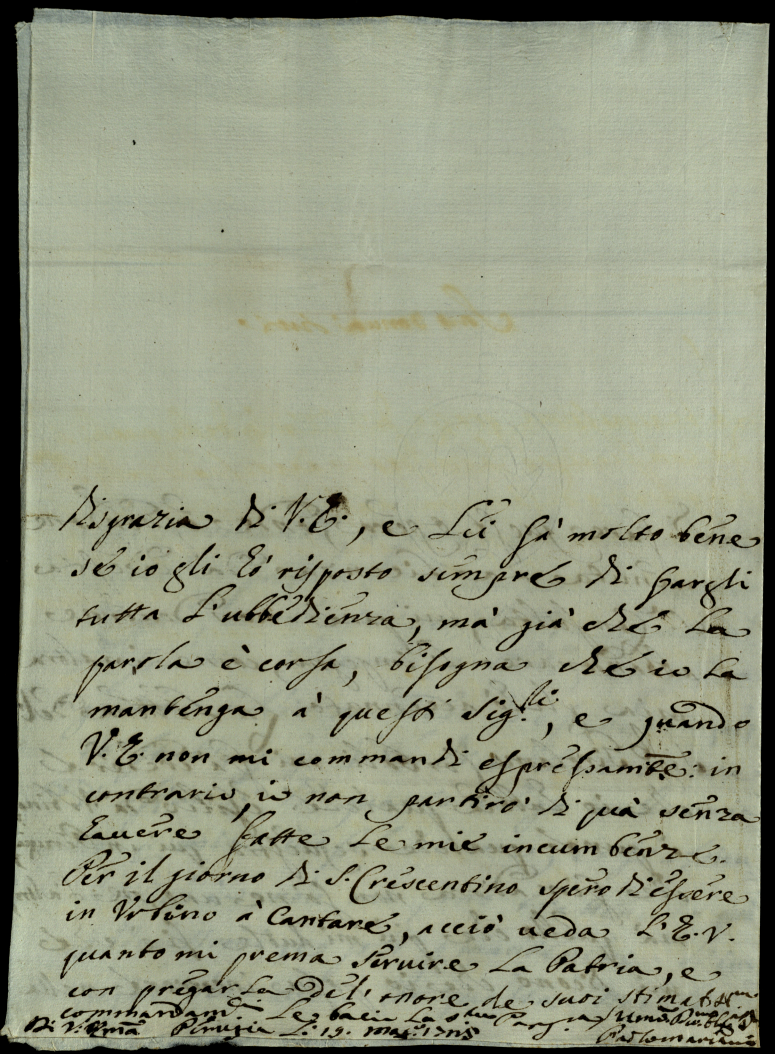 disgrazia di V.E., e Lei sà molto bene
se io gli hò risposto sempre di fargli
tutta l'ubbedienza, mà già che la
parola è corsa, bisogna che io la
mantenga à questi Sig.li, e quando
V.E. non mi commandi espressamte: in
contrario, io non partirò di quà senza
hauere fatte le mie incumbenze.
Per il giorno di S. Crescentino spero di essere
in Vrbino à Cantare, acciò ueda l'E.V.
quanto mi prema seruire la Patria, e
con pregarla dell'onore de suoi stimat
commandam.ti le bacio la
Di V. Perugia Li 19. mag.